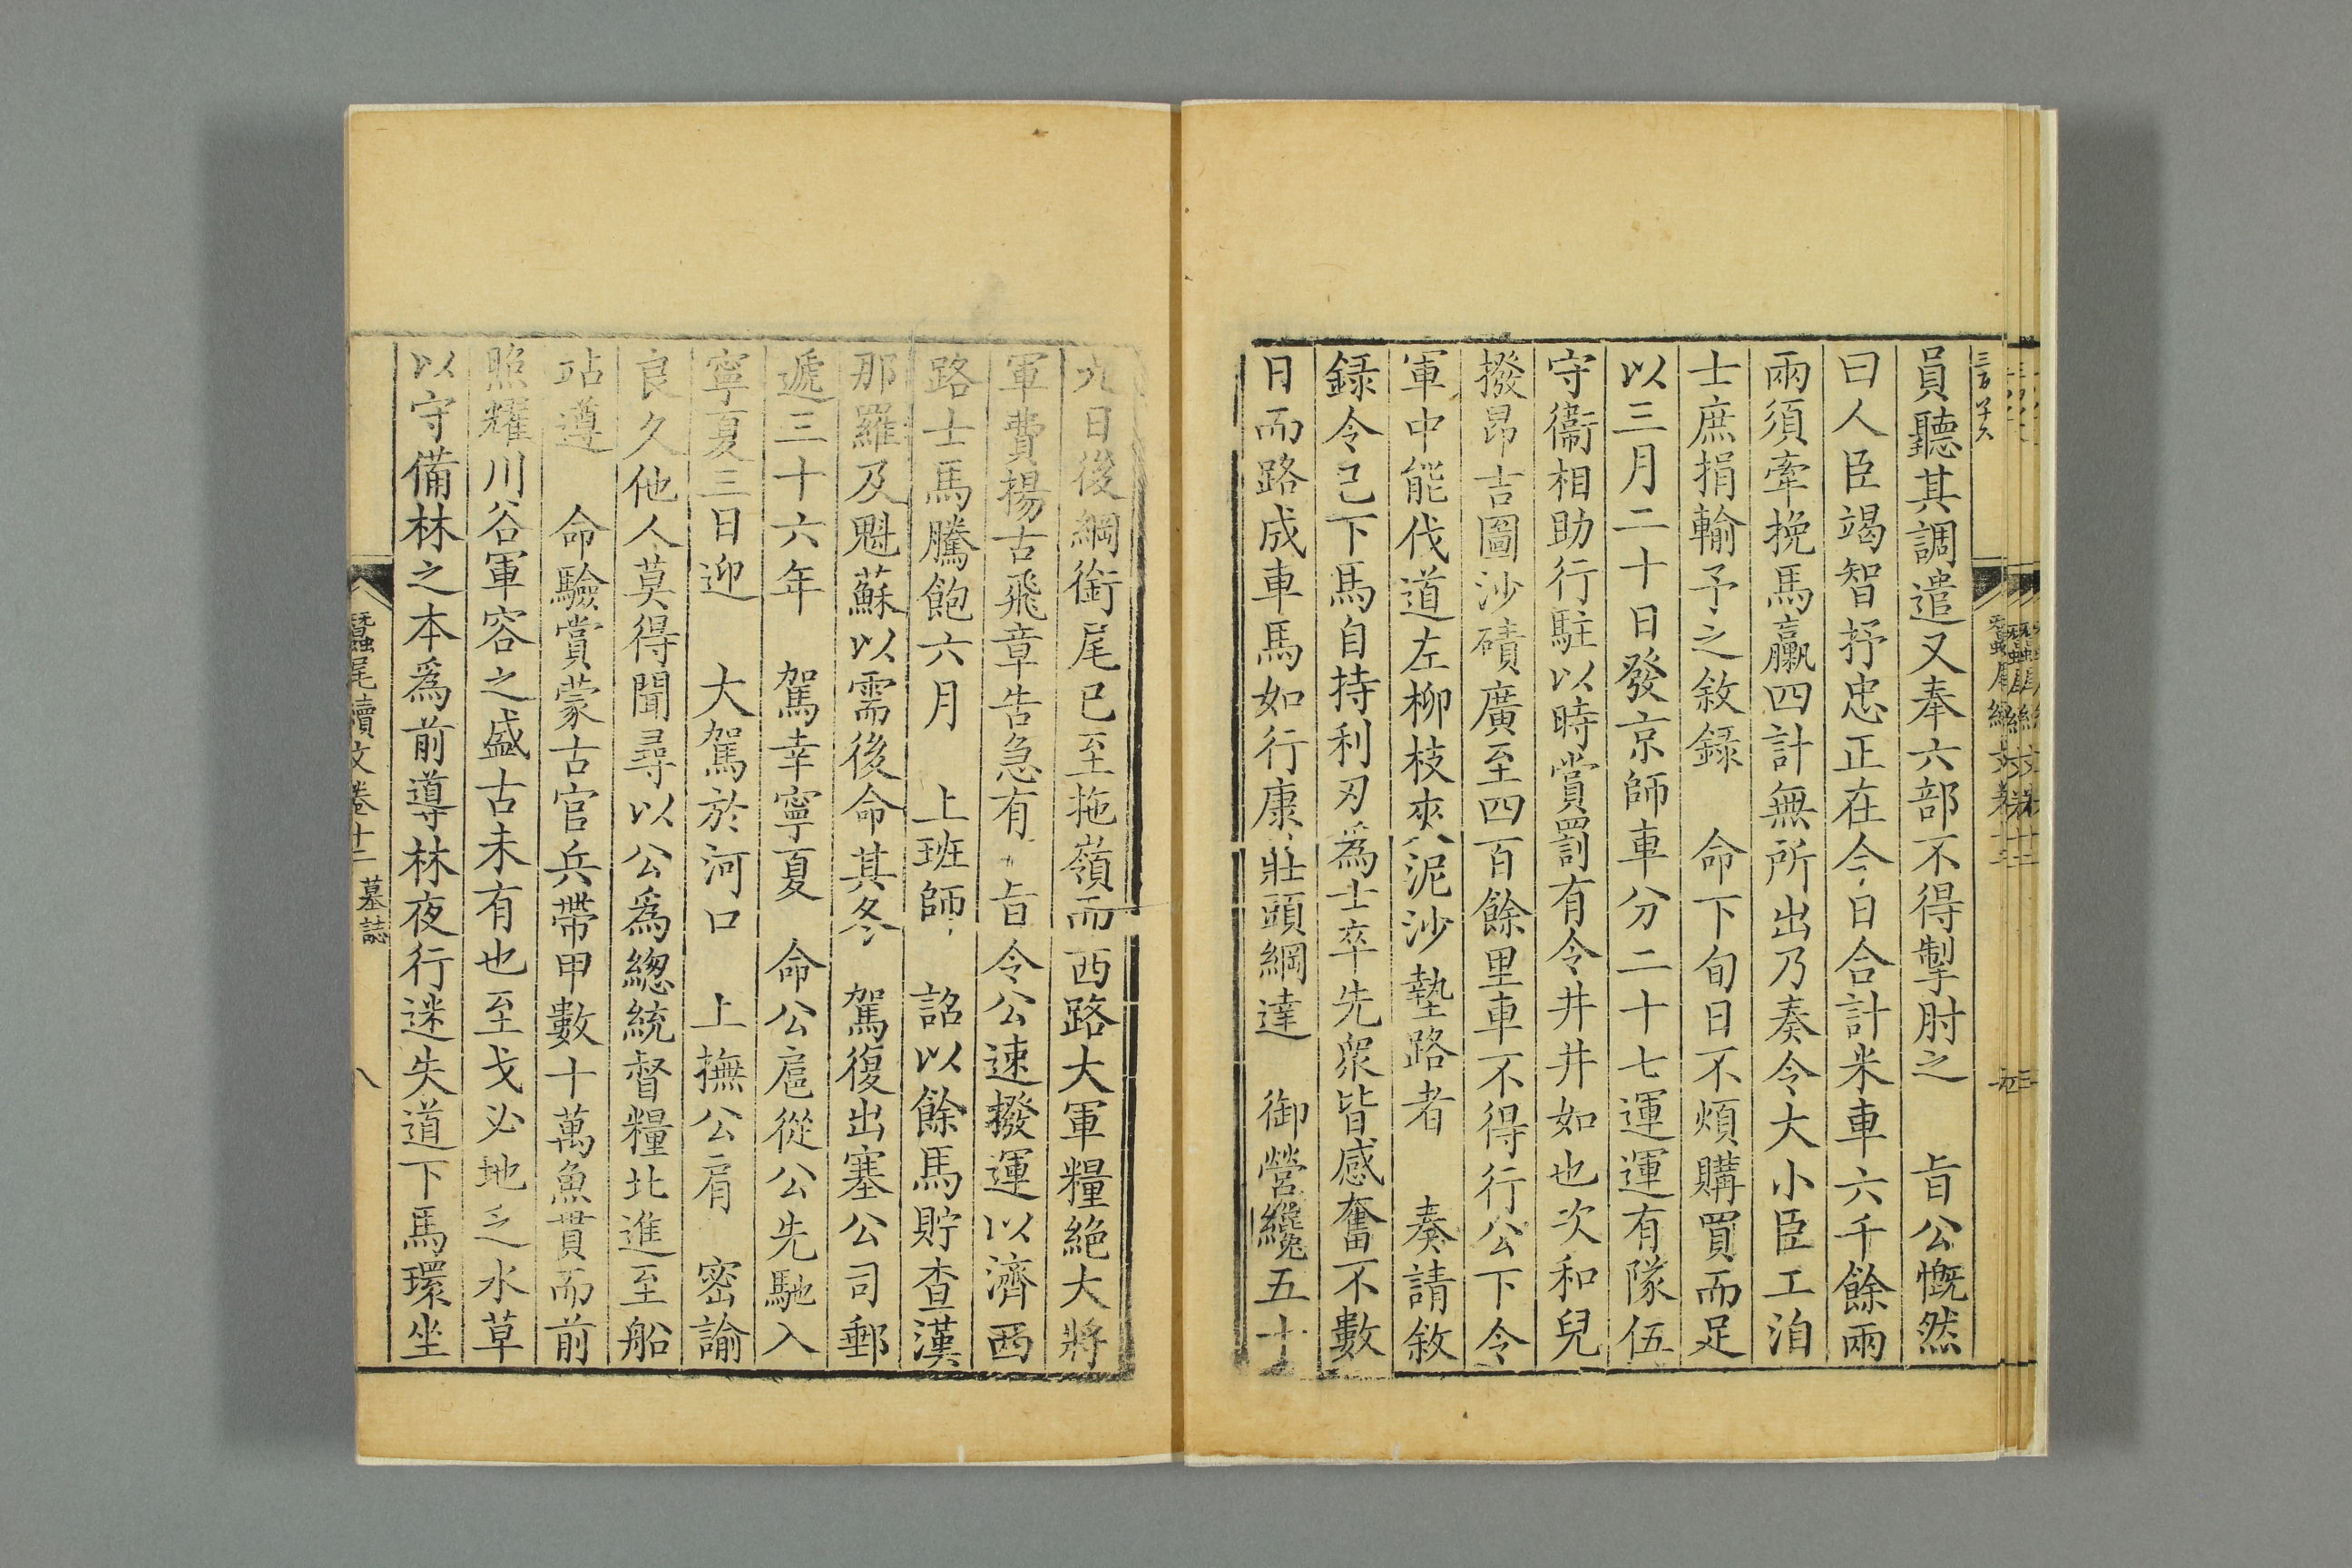 員聽其調遣又奉六部不得掣肘之　旨公慨然
曰人臣竭智抒忠正在今日合計米車六千餘兩
兩須牽挽馬驘四計無所出乃奏令大小臣工洎
士庶捐輸予之敘錄　命下旬日不煩購買而足
以三月二十日發京師車分二十七運運有隊伍
守衞相助行駐以時賞罰有令井井如也次和兒
撥昂吉圖沙磧廣至四百餘里車不得行公下令
軍中能伐道左柳枝夾泥沙墊路者　奏請敘
録令已下馬自持利刃爲士卒先衆皆感奮不數
日而路成車馬如行康莊頭綱達　御營纔五十
九日後綱銜尾已至拖嶺而西路大軍糧絶大將
軍費揚古飛章告急有　旨令公速撥運以濟西
路士馬騰飽六月　上班師　詔以餘馬貯查漢
那羅及魁蘇以需後命其冬　駕復出塞公司郵
遞三十六年　駕幸寧夏　命公扈從公先馳入
寧夏三日迎　大駕於河口　上撫公肩　密諭
良久他人莫得聞尋以公爲總統督糧北進至船
站遵　命驗賞蒙古官兵帶甲數十萬魚貫而前
照耀川谷軍容之盛古未有也至戈必地乏水草
以守備林之本爲前導林夜行迷失道下馬環坐
蠶尾續文卷十二　墓誌　八